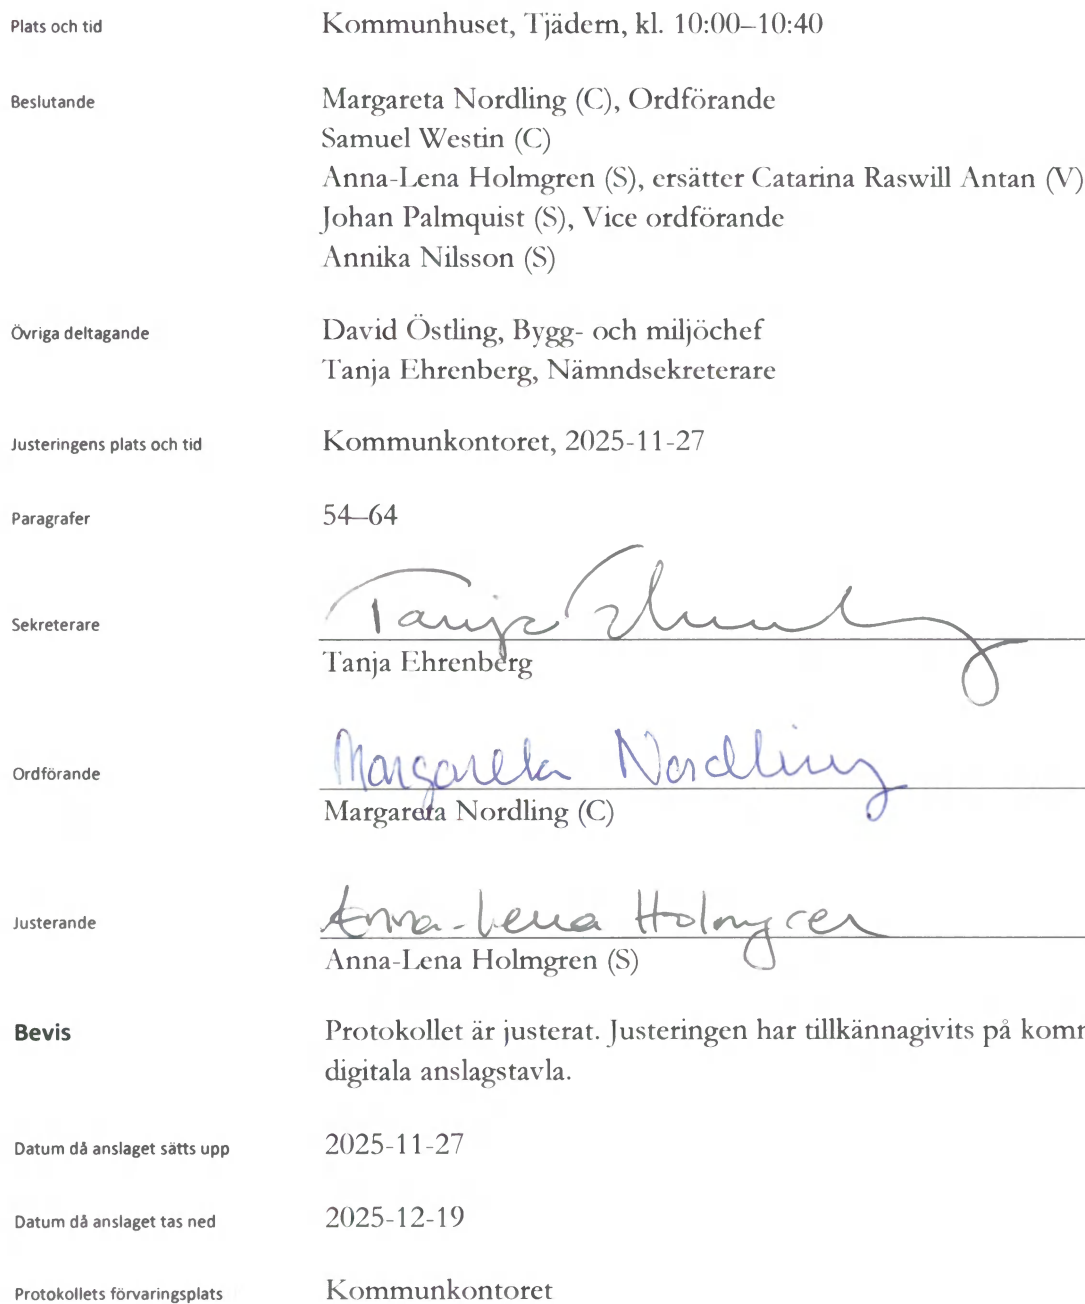 Plats och tid Kommunhuset, Tjädern, kl. 10:00–10:40
Beslutande Margareta Nordling (C), Ordförande
Samuel Westin (C)
Anna-Lena Holmgren (S), ersätter Catarina Raswill Antan (V)
Johan Palmquist (S), Vice ordförande
Annika Nilsson (S)
Övriga deltagande David Östling, Bygg- och miljöchef
Tanja Ehrenberg, Nämndsekreterare
Justeringens plats och tid Kommunkontoret, 2025-11-27
Paragrafer 54–64
Sekreterare Tanja Ehrenberg
Tanja Ehrenberg
Ordförande Margareta Nordling
Margareta Nordling (C)
Justerande Anna-Lena Holmgren
Anna-Lena Holmgren (S)
Bevis Protokollet är justerat. Justeringen har tillkännagivits på
digitala anslagstavla.
Datum då anslaget sätts upp 2025-11-27
Datum då anslaget tas ned 2025-12-19
Protokollets förvaringsplats Kommunkontoret